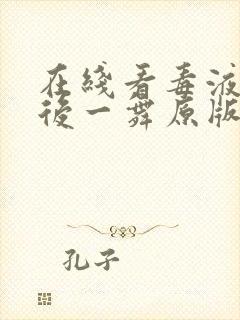 在綫看毒液
後一舞原版
孔子